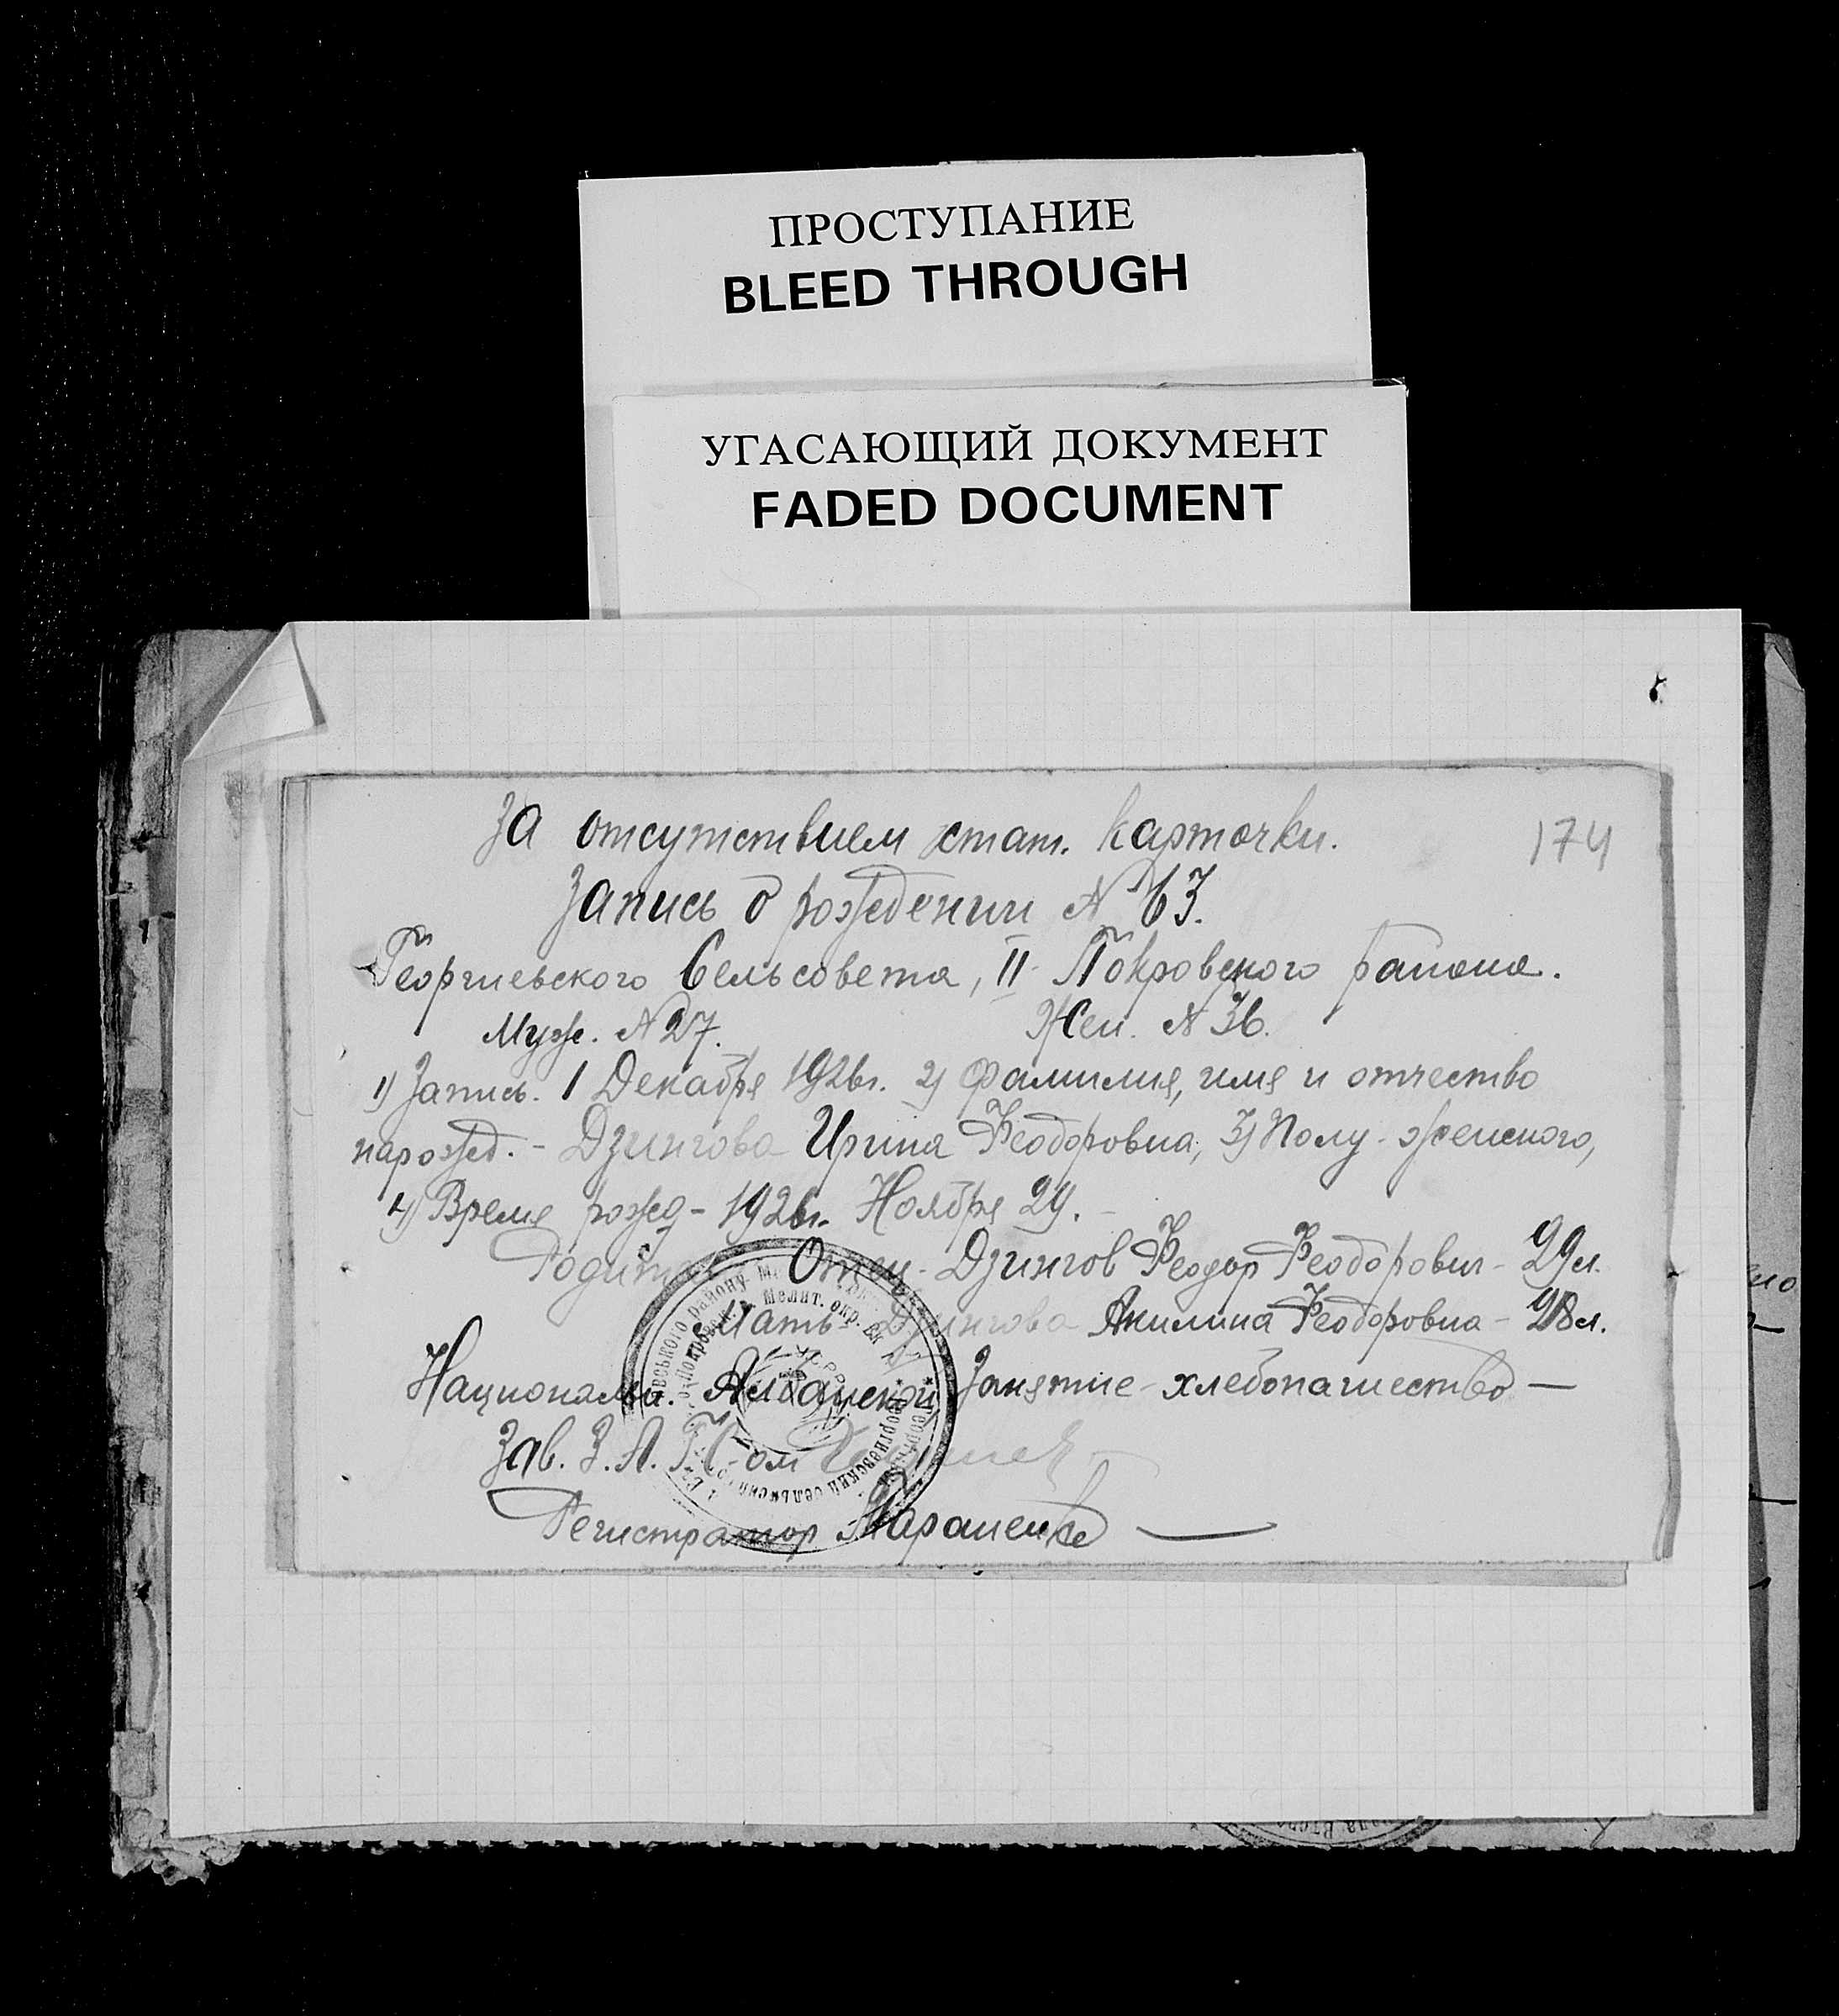 ПРОСТУПАНИЕ
BLEED THROUGH
УГАСАЮЩИЙ ДОКУМЕНТ
FADED DOCUMENT
174
За отсутствием стат. карточки.
Запись о рождении № 63.
Георгиевского Сельсовета, II Покровского района.
Муж. № 27. Жен. № 36.
1) Запись. 1 Декабря 1926г. 2) Фамилия, имя и отчество
нарожд. - Дзингова Ирина Феодоровна, 3) Полу - женского,
4) Время рожд - 1926г. Ноября 29. -
Отец - Дзингов Феодор Феодорович - 29 л.
Мать - Дзингова Акилина Феодоровна - 28 л.
Национальн. Албанской, Занятие - хлебопашество —
Зав. З.А.ГС-ом
Регистратор Мараненко —